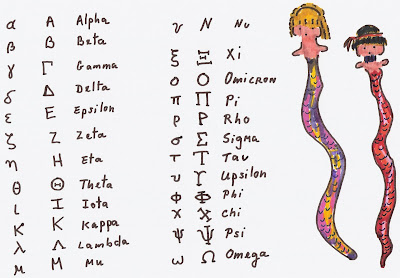 α Α Alpha
β Β Beta
γ Γ Gamma
δ Δ Delta
ε Ε Epsilon
ζ Ζ Zeta
η Η Eta
θ Θ Theta
ι Ι Iota
κ Κ Kappa
λ Λ Lambda
μ Μ Mu
ν Ν Nu
ξ Ξ Xi
ο Ο Omicron
π Π Pi
ρ Ρ Rho
σ Σ Sigma
τ Τ Tau
υ Υ Upsilon
φ Φ Phi
χ Χ Chi
ψ Ψ Psi
ω Ω Omega